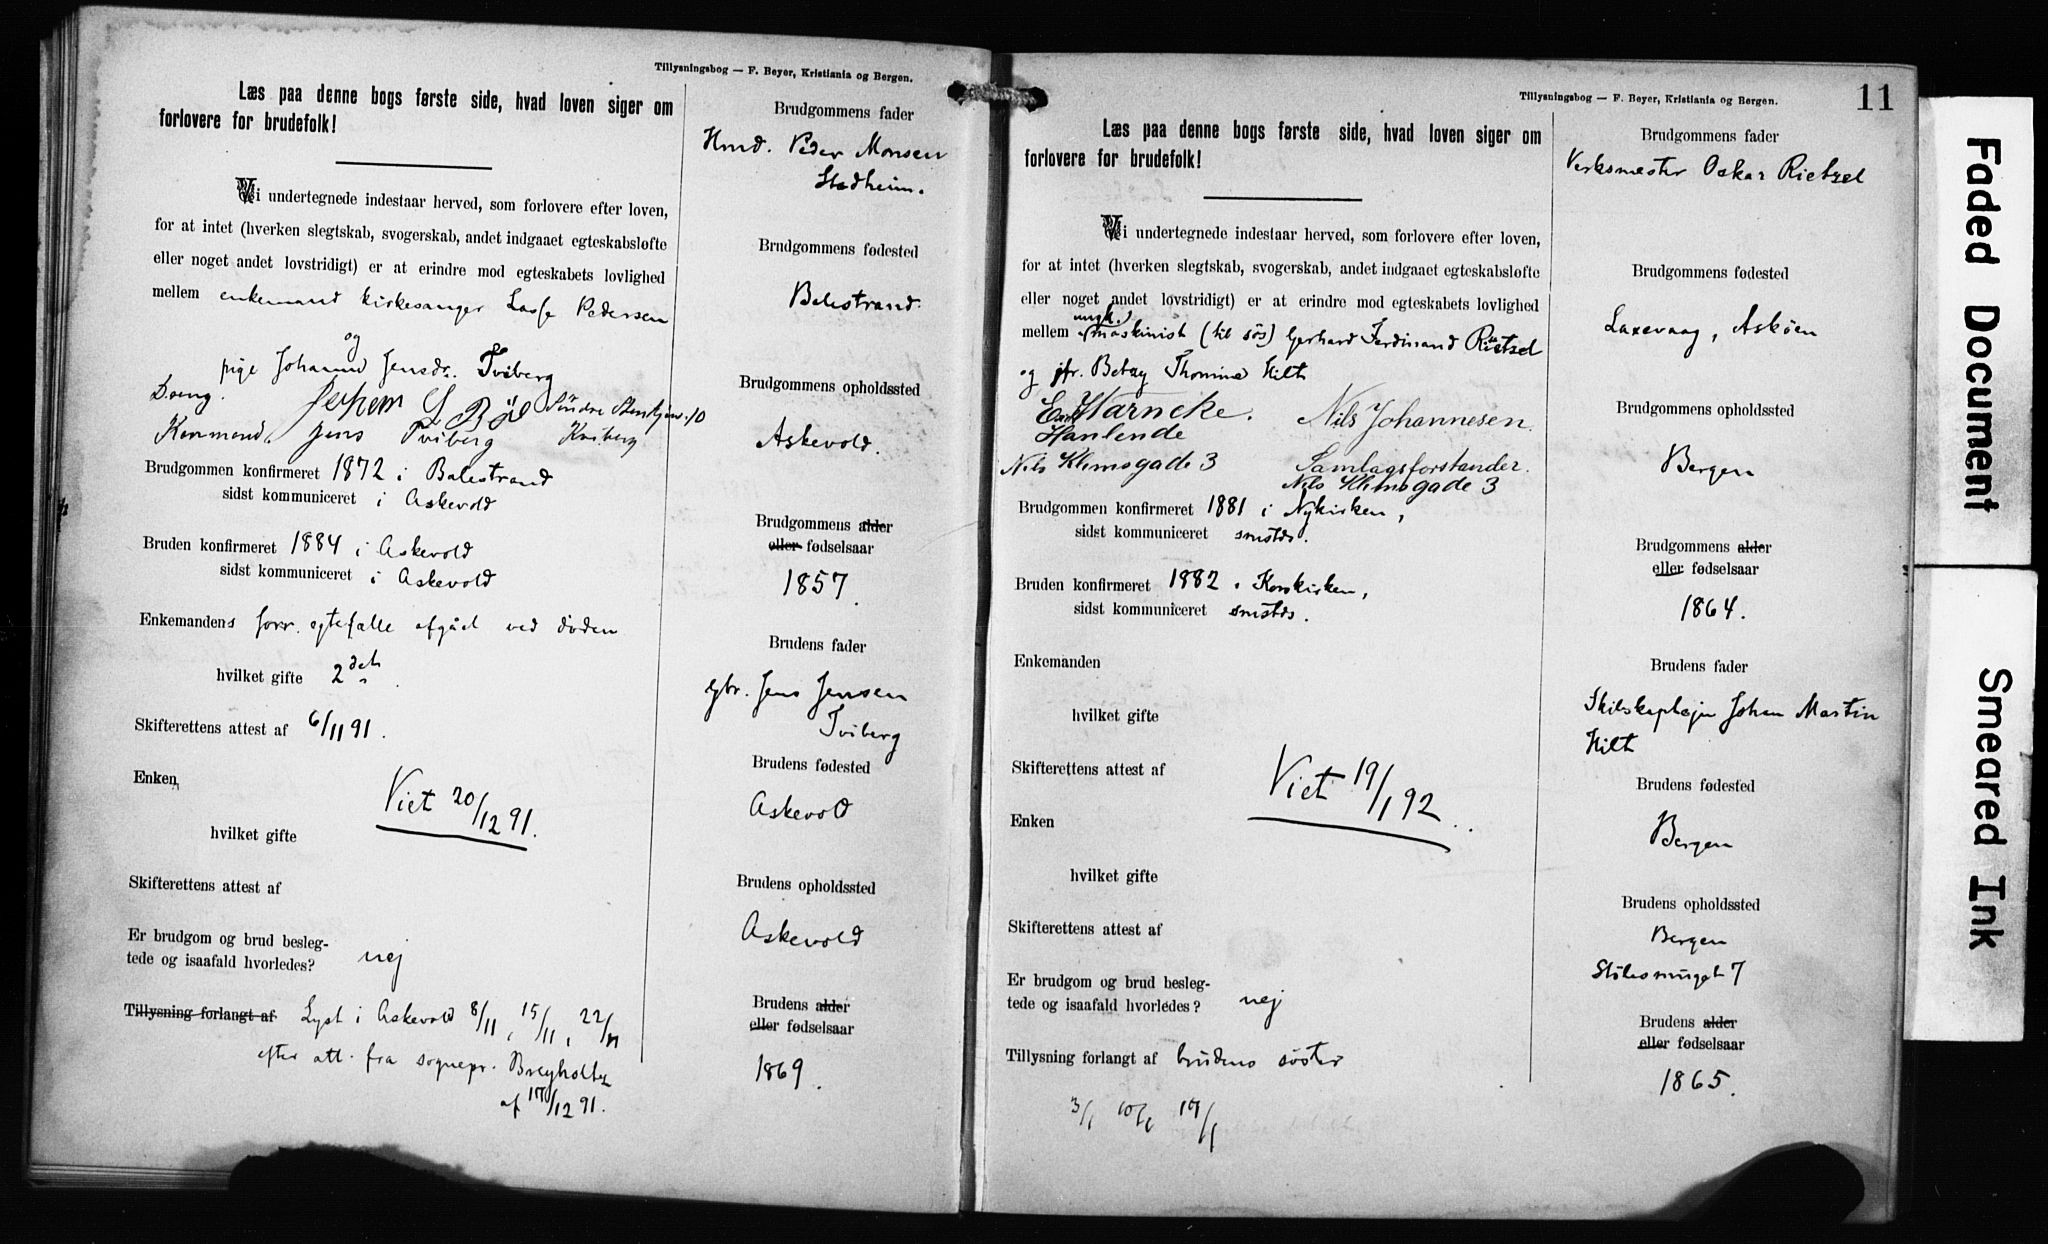 Tillysningsbog — F. Beyer, Kristiania og Bergen.
Læs paa denne bogs første side, hvad loven siger om
forlovere for brudefolk!
Vi undertegnede indestaar herved, som forlovere efter loven,
for at intet (hverken slegtskab, svogerskab, andet indgaaet egteskabsløfte
eller noget andet lovstridigt) er at erindre mod egteskabets lovlighed
mellem enkemand kirkesanger Lasse Pedersen
og
pige Johanne Jensdr. Tviberg
Kenmand. Jens Tviberg
Brudgommen konfirmeret 1872 i Balestrand
sidst kommuniceret i Askevold
Bruden konfirmeret 1884 i Askevold
sidst kommuniceret i Askevold
Enkemandens forr. egtefælle afgået ved døden
hvilket gifte 2det
Skifterettens attest af 6/11 91.
Enken
Viet 20/12 91.
hvilket gifte
Skifterettens attest af
Er brudgom og brud besleg-
tede og isaafald hvorledes? nej
Tillysning forlangt af Lyst i Askevold 8/11, 15/11, 22/11
efter att. fra sognepr. Breyholtz
af 17/12 91.
Brudgommens fader
Hmd. Peder Monsen
Stadheim.
Brudgommens fødested
Balestrand.
Brudgommens opholdssted
Askevold.
Brudgommens alder
eller fødselsaar
1857.
Brudens fader
gbr. Jens Jensen
Tviberg
Brudens fødested
Askevold
Brudens opholdssted
Askevold
Brudens alder
eller fødselsaar
1869.
Tillysningsbog — F. Beyer, Kristiania og Bergen.
11
Læs paa denne bogs første side, hvad loven siger om
forlovere for brudefolk!
Vi undertegnede indestaar herved, som forlovere efter loven,
for at intet (hverken slegtskab, svogerskab, andet indgaaet egteskabsløfte
eller noget andet lovstridigt) er at erindre mod egteskabets lovlighed
ungk.
mellem maskinist (til søs) Gerhard Ferdinand Rietzel
og jfr. Betzy Thomine Hilt
Harncke. Nils Johannesen.
Hanlende
Nils Klimsgade 3 Samlagsforstander.
Nils Klimsgade 3
Brudgommen konfirmeret 1881 i Nykirken,
sidst kommuniceret smstds.
Bruden konfirmeret 1882 i Korskirken,
sidst kommuniceret smstds.
Enkemanden
hvilket gifte
Skifterettens attest af
Viet 19/1 92.
Enken
hvilket gifte
Skifterettens attest af
Er brudgom og brud besleg-
tede og isaafald hvorledes? nej
Tillysning forlangt af brudens søster
3/1 10/1 17/1
Brudgommens fader
Verksmester Oskar Rietzel
Brudgommens fødested
Laxevaag, Askøen
Brudgommens opholdssted
Bergen
Brudgommens alder
eller fødselsaar
1864.
Brudens fader
Johan Martin
Hilt
Brudens fødested
Bergen
Brudens opholdssted
Bergen
Stølesmuget 7
Brudens alder
eller fødselsaar
1865.
Faded Document
Smeared Ink